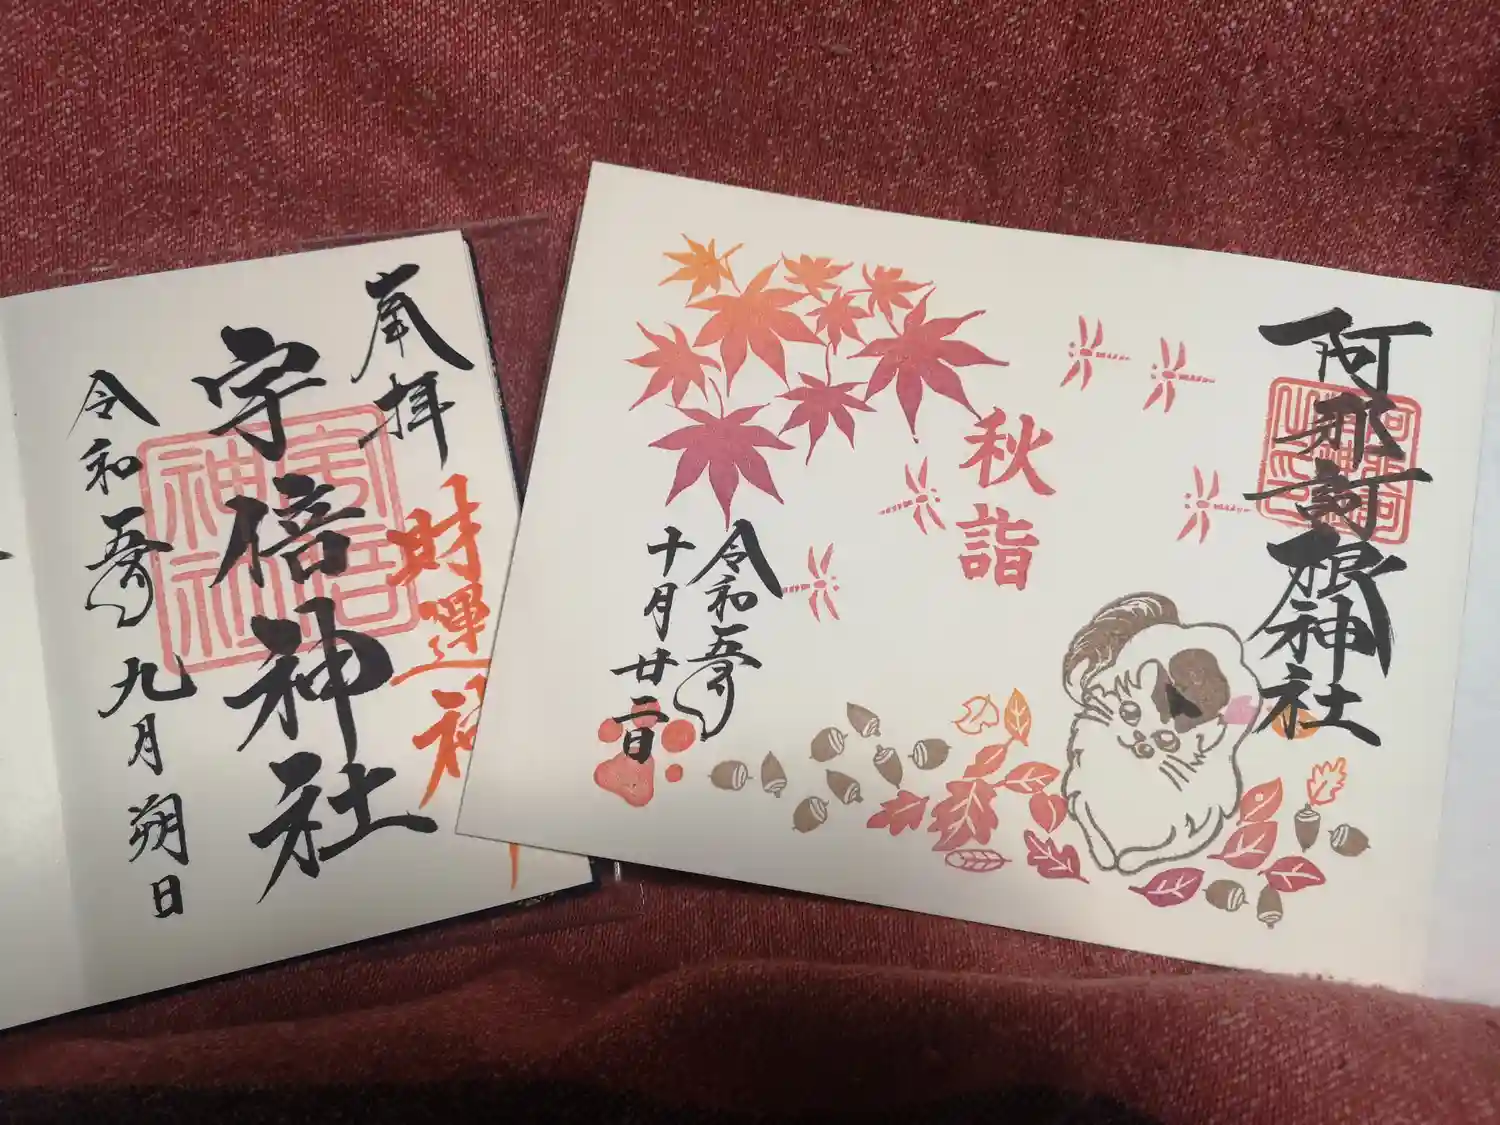 奉拝
財運神
宇倍神社
宇倍
神社
令和五年九月朔日
阿那訶根神社
秋詣
令和五年
十月廿二日